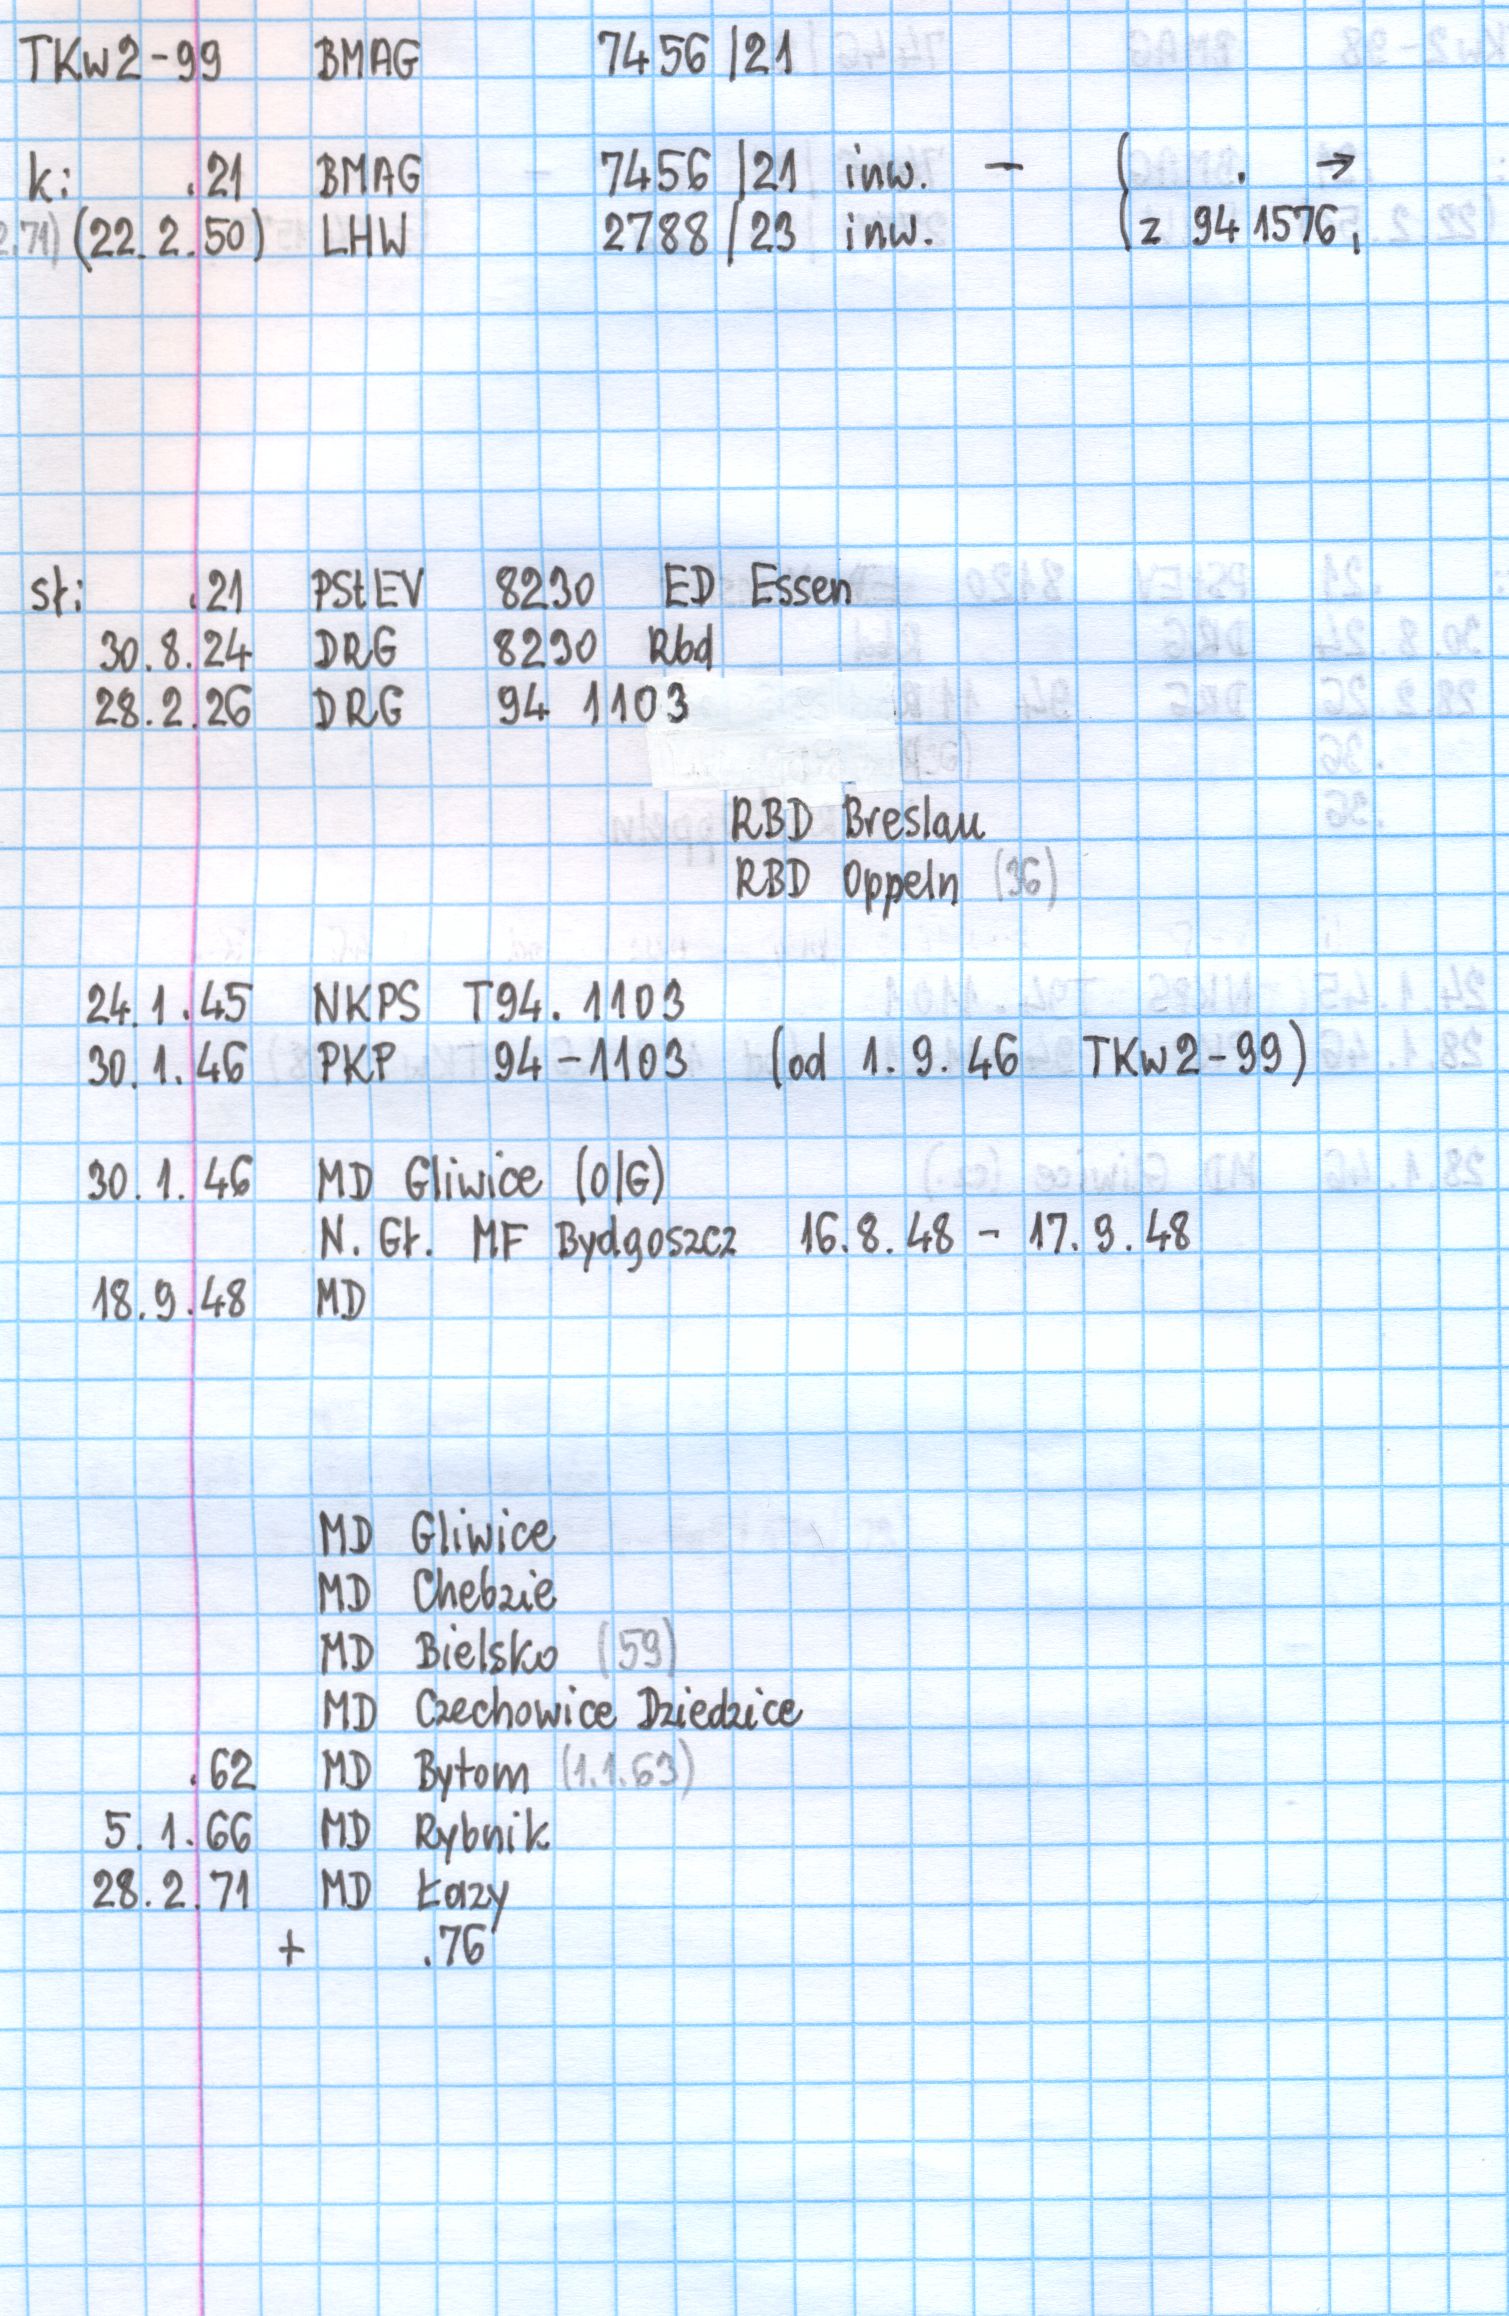 TKw2-99 BMAG 7456/21
k: .21 BMAG 7456/21 inw. – ( . →
2.71) (22.2.50) LHW 2788/23 inw. (z 94 1576,
st: .21 PStEV 8230 ED Essen
30.8.24 DRG 8230 Rbd
28.2.26 DRG 94 1103
RBD Breslau
RBD Oppeln (36)
24.1.45 NKPS T94.1103
30.1.46 PKP 94-1103 (od 1.9.46 TKw2-99)
30.1.46 MD Gliwice (O/G)
N. Gł. MF Bydgoszcz 16.8.48 - 17.9.48
18.9.48 MD
MD Gliwice
MD Chebzie
MD Bielsko (59)
MD Czechowice Dziedzice
.62 MD Bytom (1.1.63)
5.1.66 MD Rybnik
28.2.71 MD Łazy
+ .76